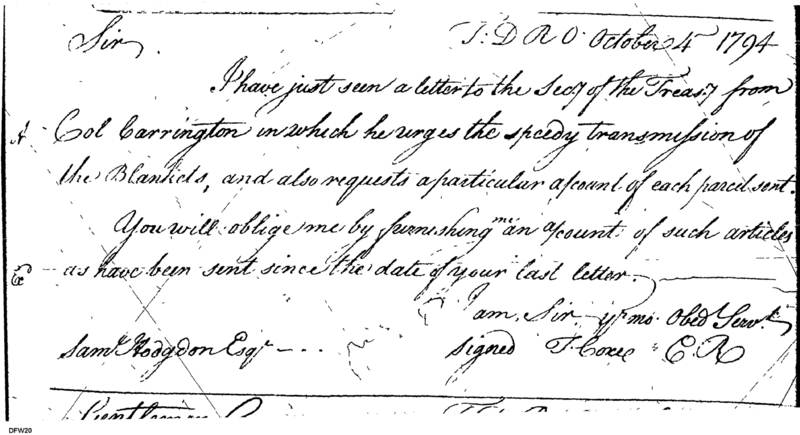 Sir T. D R O. October 4 1794
I have just seen a letter to the Secy of the Treasy from
Col Carrington in which he urges the speedy transmission of
the Blankets, and also requests a particular account of each parcel sent.
You will oblige me by furnishing me an account of such articles
as have been sent since the date of your last letter.
I am, Sir yr mo. Obed Servt.
Saml Hodgdon Esqr signed T. Coxe C. R
Gentleman
DFW20